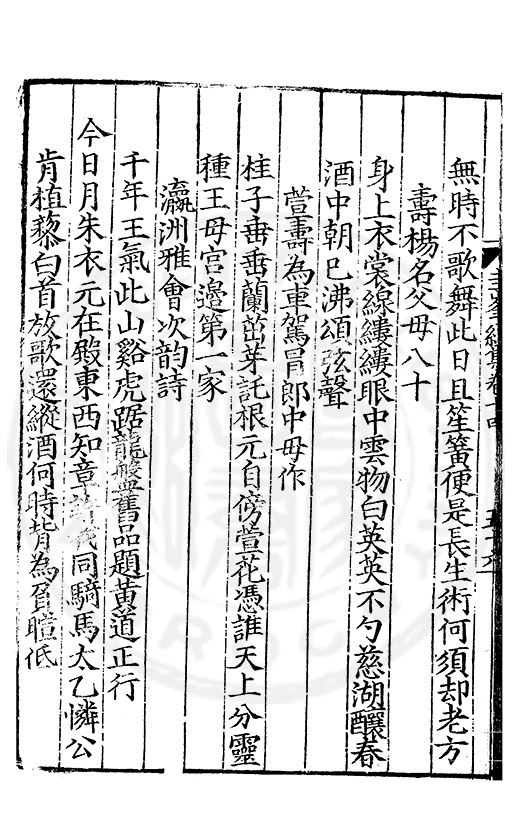 無時不歌舞此日且笙簧便是長生術何須却老方
壽楊名父母八十
身上衣裳線縷縷眼中雲物白英英不勺慈湖釀春
酒中朝已沸頌弦聲
萱壽為車駕冐郎中母作
桂子垂垂蘭茁芽託根元自傍萱花憑誰天上分靈
種王母宮邊第一家
瀛洲雅會次韵詩
千年王氣此山谿虎踞龍盤舊品題黄道正行
今日月朱衣元在殿東西知章同騎馬太乙憐公
肯植藜白首放歌還縱酒何時背為貧暄低